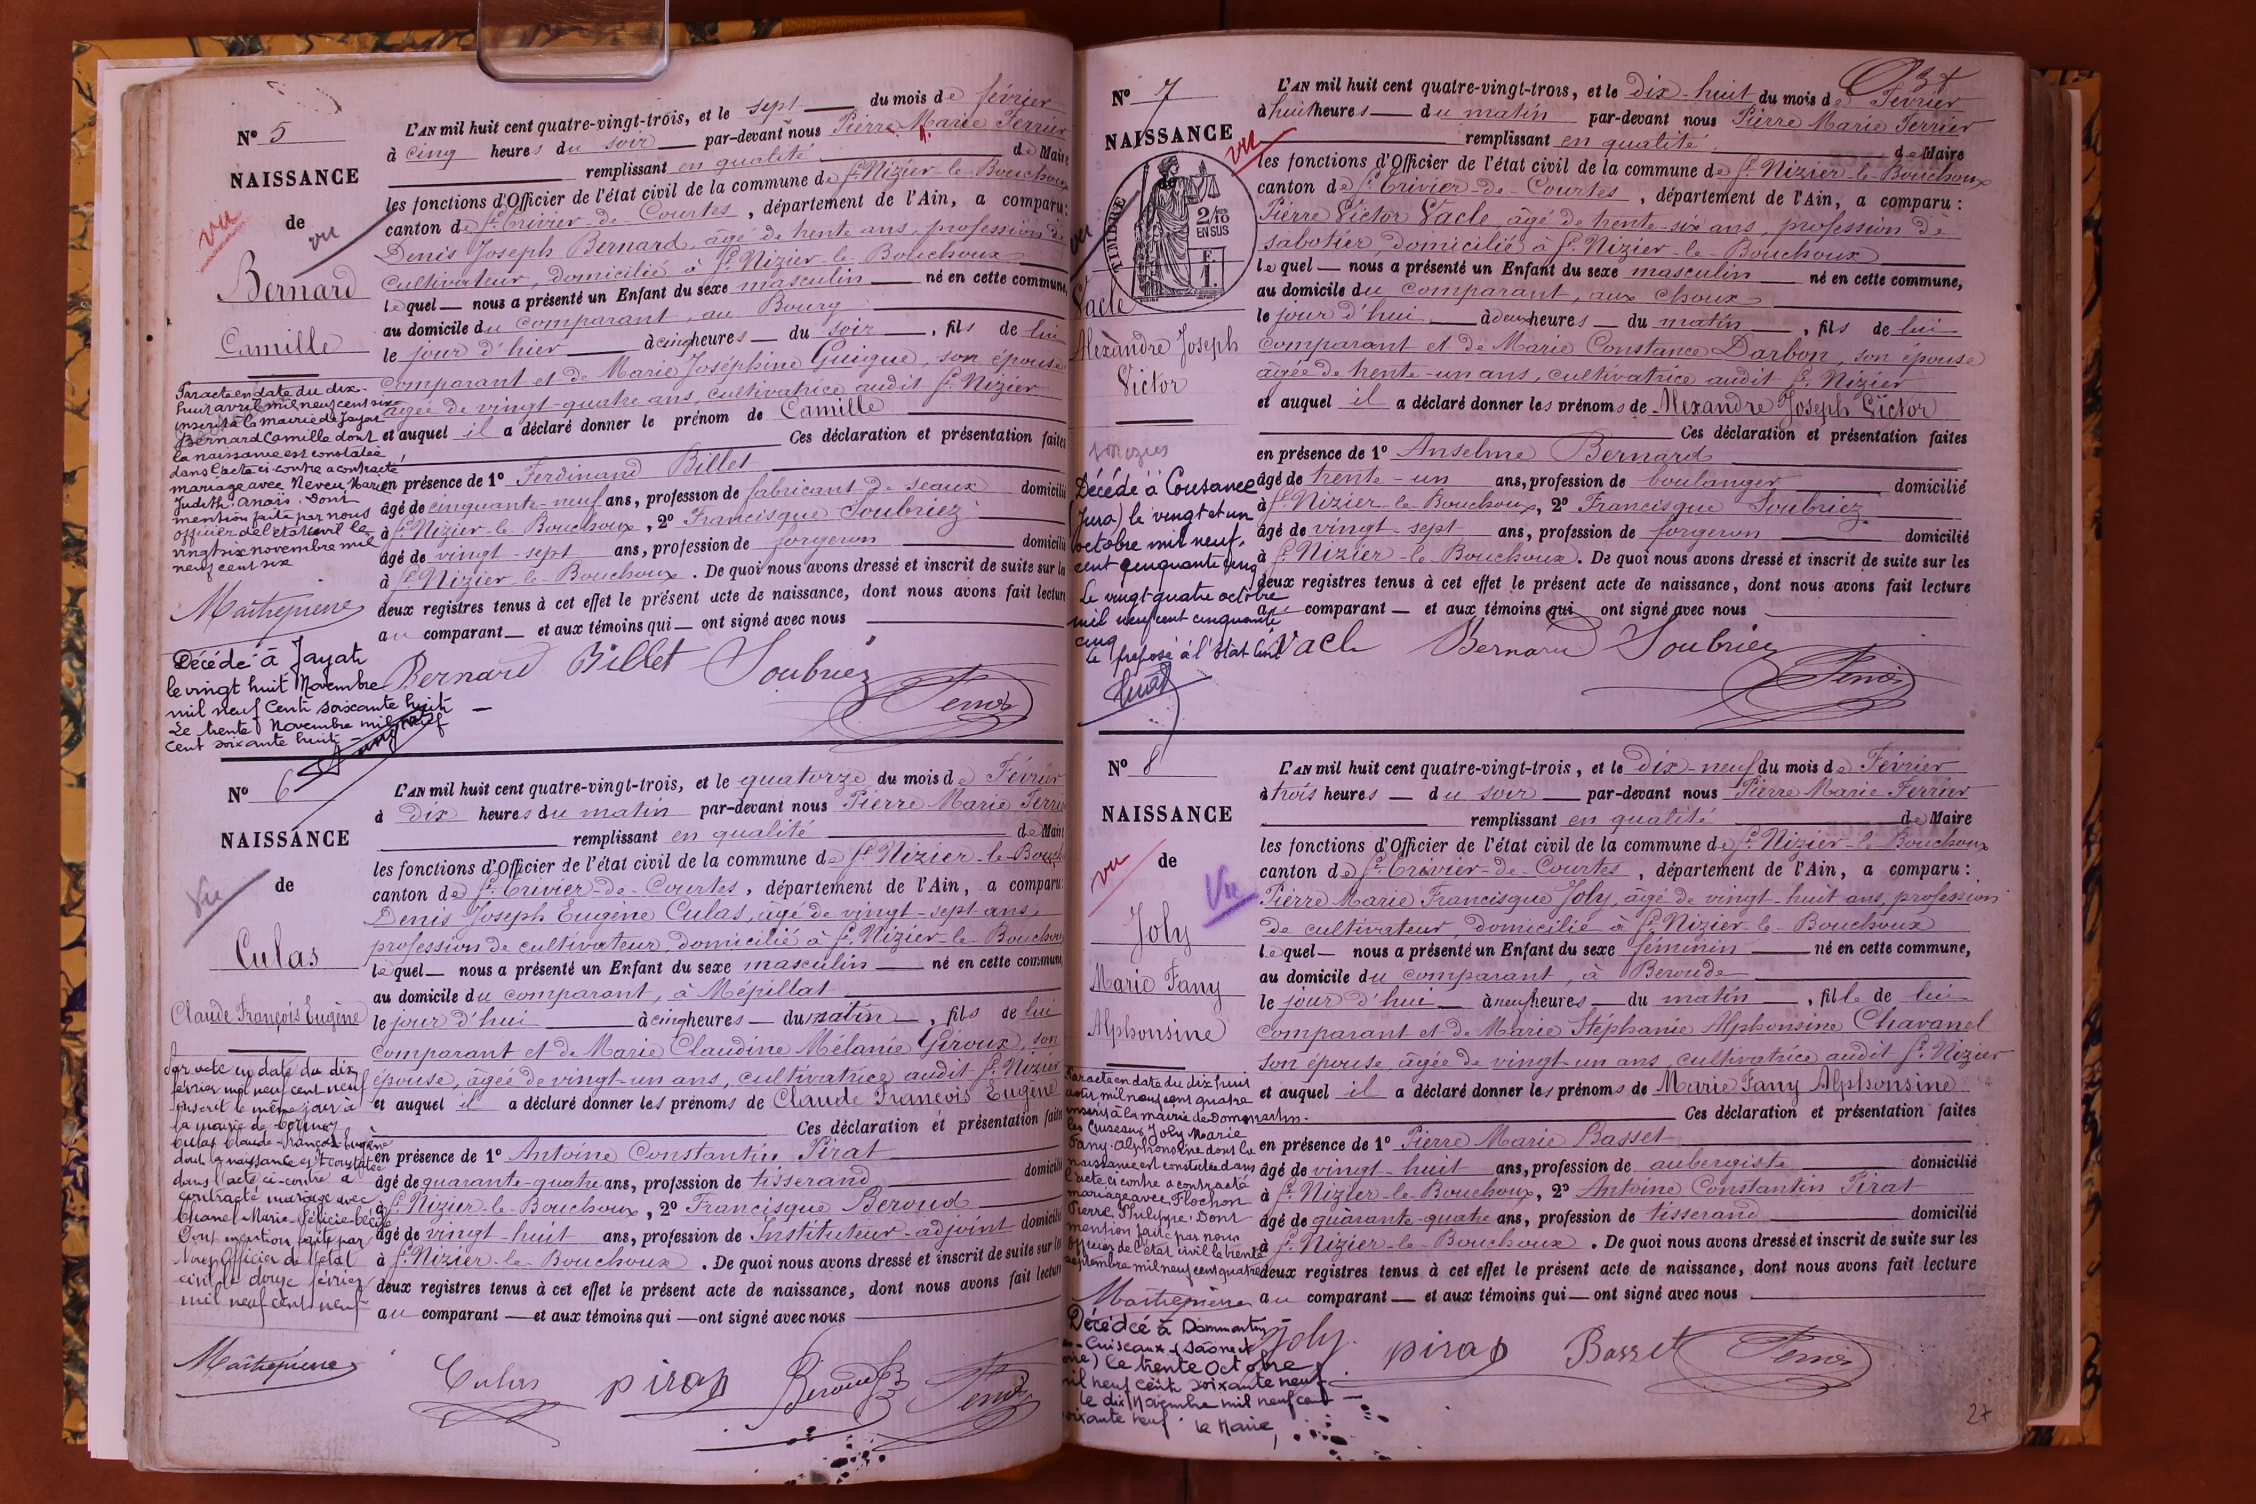 N° 5
NAISSANCE
de
vu
vu
Bernard
Camille
Par acte en date du dix-
huit avril mil neuf cent six
inscrit à la mairie de Jayat
Bernard Camille dont
la naissance est constatée
dans l'acte ci-contre a contracté
mariage avec Neveu Marie
Judith Anaïs. Dont
mention faite par nous
officier de l'état civil le
vingt six novembre mil
neuf cent six
Maîtrepierre
Décédé à Jayat
le vingt huit Novembre
mil neuf Cent soixante huit
Le trente Novembre mil neuf
cent soixante huit
L'AN mil huit cent quatre-vingt-trois, et le sept du mois de février
à cinq heures du soir par-devant nous Pierre Marie Ferrier
remplissant en qualité de Maire
les fonctions d'Officier de l'état civil de la commune de St Nizier-le-Bouchoux
canton de St Trivier-de-Courtes, département de l'Ain, a comparu :
Denis Joseph Bernard, âgé de trente ans, profession de
cultivateur, domicilié à St Nizier-le-Bouchoux
lequel nous a présenté un Enfant du sexe masculin né en cette commune,
au domicile du comparant, au Bourg
le jour d'hier à cinq heures du soir, fils de lui
comparant et de Marie Joséphine Guigue, son épouse
âgée de vingt-quatre ans, cultivatrice audit St Nizier
et auquel il a déclaré donner le prénom de Camille
Ces déclaration et présentation faites
en présence de 1° Ferdinand Billet
âgé de cinquante-neuf ans, profession de fabricant de seaux domicilié
à St Nizier-le-Bouchoux, 2° Francisque Soubriez
âgé de vingt-sept ans, profession de forgeron domicilié
à St Nizier-le-Bouchoux. De quoi nous avons dressé et inscrit de suite sur les
deux registres tenus à cet effet le présent acte de naissance, dont nous avons fait lecture
au comparant et aux témoins qui ont signé avec nous
Bernard Billet Soubriez
Ferrier
N° 6
NAISSANCE
Vu
de
Culas
Claude François Eugène
Par acte en date du dix
février mil neuf cent neuf
inscrit le même jour à
la mairie de Cormoz
Culas Claude-François-Eugène
dont la naissance est constatée
dans l'acte ci-contre a
contracté mariage avec
Chanel Marie-Félicie-Cécile
Dont mention faite par
Nous Officier de l'état
civil le douze février
mil neuf cent neuf
Maîtrepierre
L'AN mil huit cent quatre-vingt-trois, et le quatorze du mois de Février
à dix heures du matin par-devant nous Pierre Marie Ferrier
remplissant en qualité de Maire
les fonctions d'Officier de l'état civil de la commune de St Nizier-le-Bouch
canton de St Trivier-de-Courtes, département de l'Ain, a comparu :
Denis Joseph Eugène Culas, âgé de vingt-sept ans,
profession de cultivateur domicilié à St Nizier-le-Bouchoux
lequel nous a présenté un Enfant du sexe masculin né en cette commune,
au domicile du comparant, à Mépillat
le jour d'hui à cinq heures du matin, fils de lui
comparant et de Marie Claudine Mélanie Giroux, son
épouse, âgée de vingt-un ans, cultivatrice audit St Nizier
et auquel il a déclaré donner les prénoms de Claude François Eugène
Ces déclaration et présentation faites
en présence de 1° Antoine Constantin Pirat
âgé de quarante-quatre ans, profession de tisserand domicilié
à St Nizier-le-Bouchoux, 2° Francisque Beroud
âgé de vingt-huit ans, profession de Instituteur-adjoint domicilié
à St Nizier-le-Bouchoux. De quoi nous avons dressé et inscrit de suite sur les
deux registres tenus à cet effet le présent acte de naissance, dont nous avons fait lecture
au comparant et aux témoins qui ont signé avec nous
Culas pirat Beroud Ferrier
N° 7
NAISSANCE
vu
vu
de
TIMBRE
2/10 EN SUS
F
1.
Vacle
Alexandre Joseph
Victor
Décédé à Cousance
(Jura) le vingt et un
octobre mil neuf
cent cinquante cinq
Le vingt quatre octobre
mil neuf cent cinquante
cinq
le préposé à l'Etat Civil
L'AN mil huit cent quatre-vingt-trois, et le dix-huit du mois de Février
à huit heures du matin par-devant nous Pierre Marie Ferrier
remplissant en qualité de Maire
les fonctions d'Officier de l'état civil de la commune de St Nizier-le-Bouchoux
canton de St Trivier-de-Courtes, département de l'Ain, a comparu :
Pierre Victor Vacle, âgé de trente-six ans, profession de
sabotier, domicilié à St Nizier-le-Bouchoux
lequel nous a présenté un Enfant du sexe masculin né en cette commune,
au domicile du comparant, aux choux
le jour d'hui à deux heures du matin, fils de lui
comparant et de Marie Constance Darbon, son épouse
âgée de trente-un ans, cultivatrice audit St Nizier
et auquel il a déclaré donner les prénoms de Alexandre Joseph Victor
Ces déclaration et présentation faites
en présence de 1° Anselme Bernard
âgé de trente-un ans, profession de boulanger domicilié
à St Nizier-le-Bouchoux, 2° Francisque Soubriez
âgé de vingt-sept ans, profession de forgeron domicilié
à St Nizier-le-Bouchoux. De quoi nous avons dressé et inscrit de suite sur les
deux registres tenus à cet effet le présent acte de naissance, dont nous avons fait lecture
au comparant et aux témoins qui ont signé avec nous
Vacle Bernard Soubriez
Ferrier
N° 8
NAISSANCE
vu
de
Vu
Joly
Marie Fany
Alphonsine
Par acte en date du dix huit
août mil neuf cent quatre
inscrit à la mairie de Dommartin-
les Cuiseaux, Joly Marie
Fany Alphonsine dont la
naissance est constatée dans
l'acte ci contre a contracté
mariage avec Flochon
Pierre Philippe. Dont
mention faite par nous
officier de l'état civil le trente
septembre mil neuf cent quatre
Maîtrepierre
Décédée à Dommartin-
les-Cuiseaux (Saône et
Loire) le trente Octobre
mil neuf cent soixante neuf
le dix Novembre mil neuf cent
soixante neuf. le Maire,
L'AN mil huit cent quatre-vingt-trois, et le dix-neuf du mois de Février
à trois heures du soir par-devant nous Pierre Marie Ferrier
remplissant en qualité de Maire
les fonctions d'Officier de l'état civil de la commune de St Nizier-le-Bouchoux
canton de St Trivier-de-Courtes, département de l'Ain, a comparu :
Pierre Marie Francisque Joly, âgé de vingt-huit ans, profession
de cultivateur, domicilié à St Nizier-le-Bouchoux
lequel nous a présenté un Enfant du sexe féminin né en cette commune,
au domicile du comparant, à Beroude
le jour d'hui à neuf heures du matin, fille de lui
comparant et de Marie Stéphanie Alphonsine Chavanel
son épouse, âgée de vingt-un ans, cultivatrice audit St Nizier
et auquel il a déclaré donner les prénoms de Marie Fany Alphonsine
Ces déclaration et présentation faites
en présence de 1° Pierre Marie Basset
âgé de vingt-huit ans, profession de aubergiste domicilié
à St Nizier-le-Bouchoux, 2° Antoine Constantin Pirat
âgé de quarante-quatre ans, profession de tisserand domicilié
à St Nizier-le-Bouchoux. De quoi nous avons dressé et inscrit de suite sur les
deux registres tenus à cet effet le présent acte de naissance, dont nous avons fait lecture
au comparant et aux témoins qui ont signé avec nous
Joly pirat Basset Ferrier
27